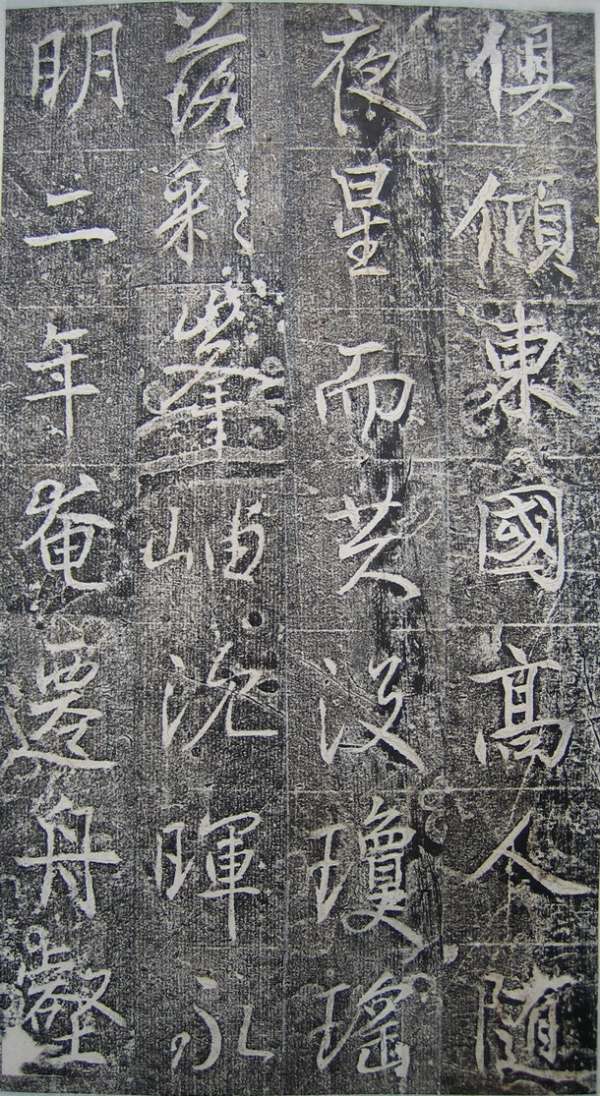 俱傾東國高人隨
夜星而共沒瓊瑤
落彩峯岫沉暉永
明二年奄遷舟壑